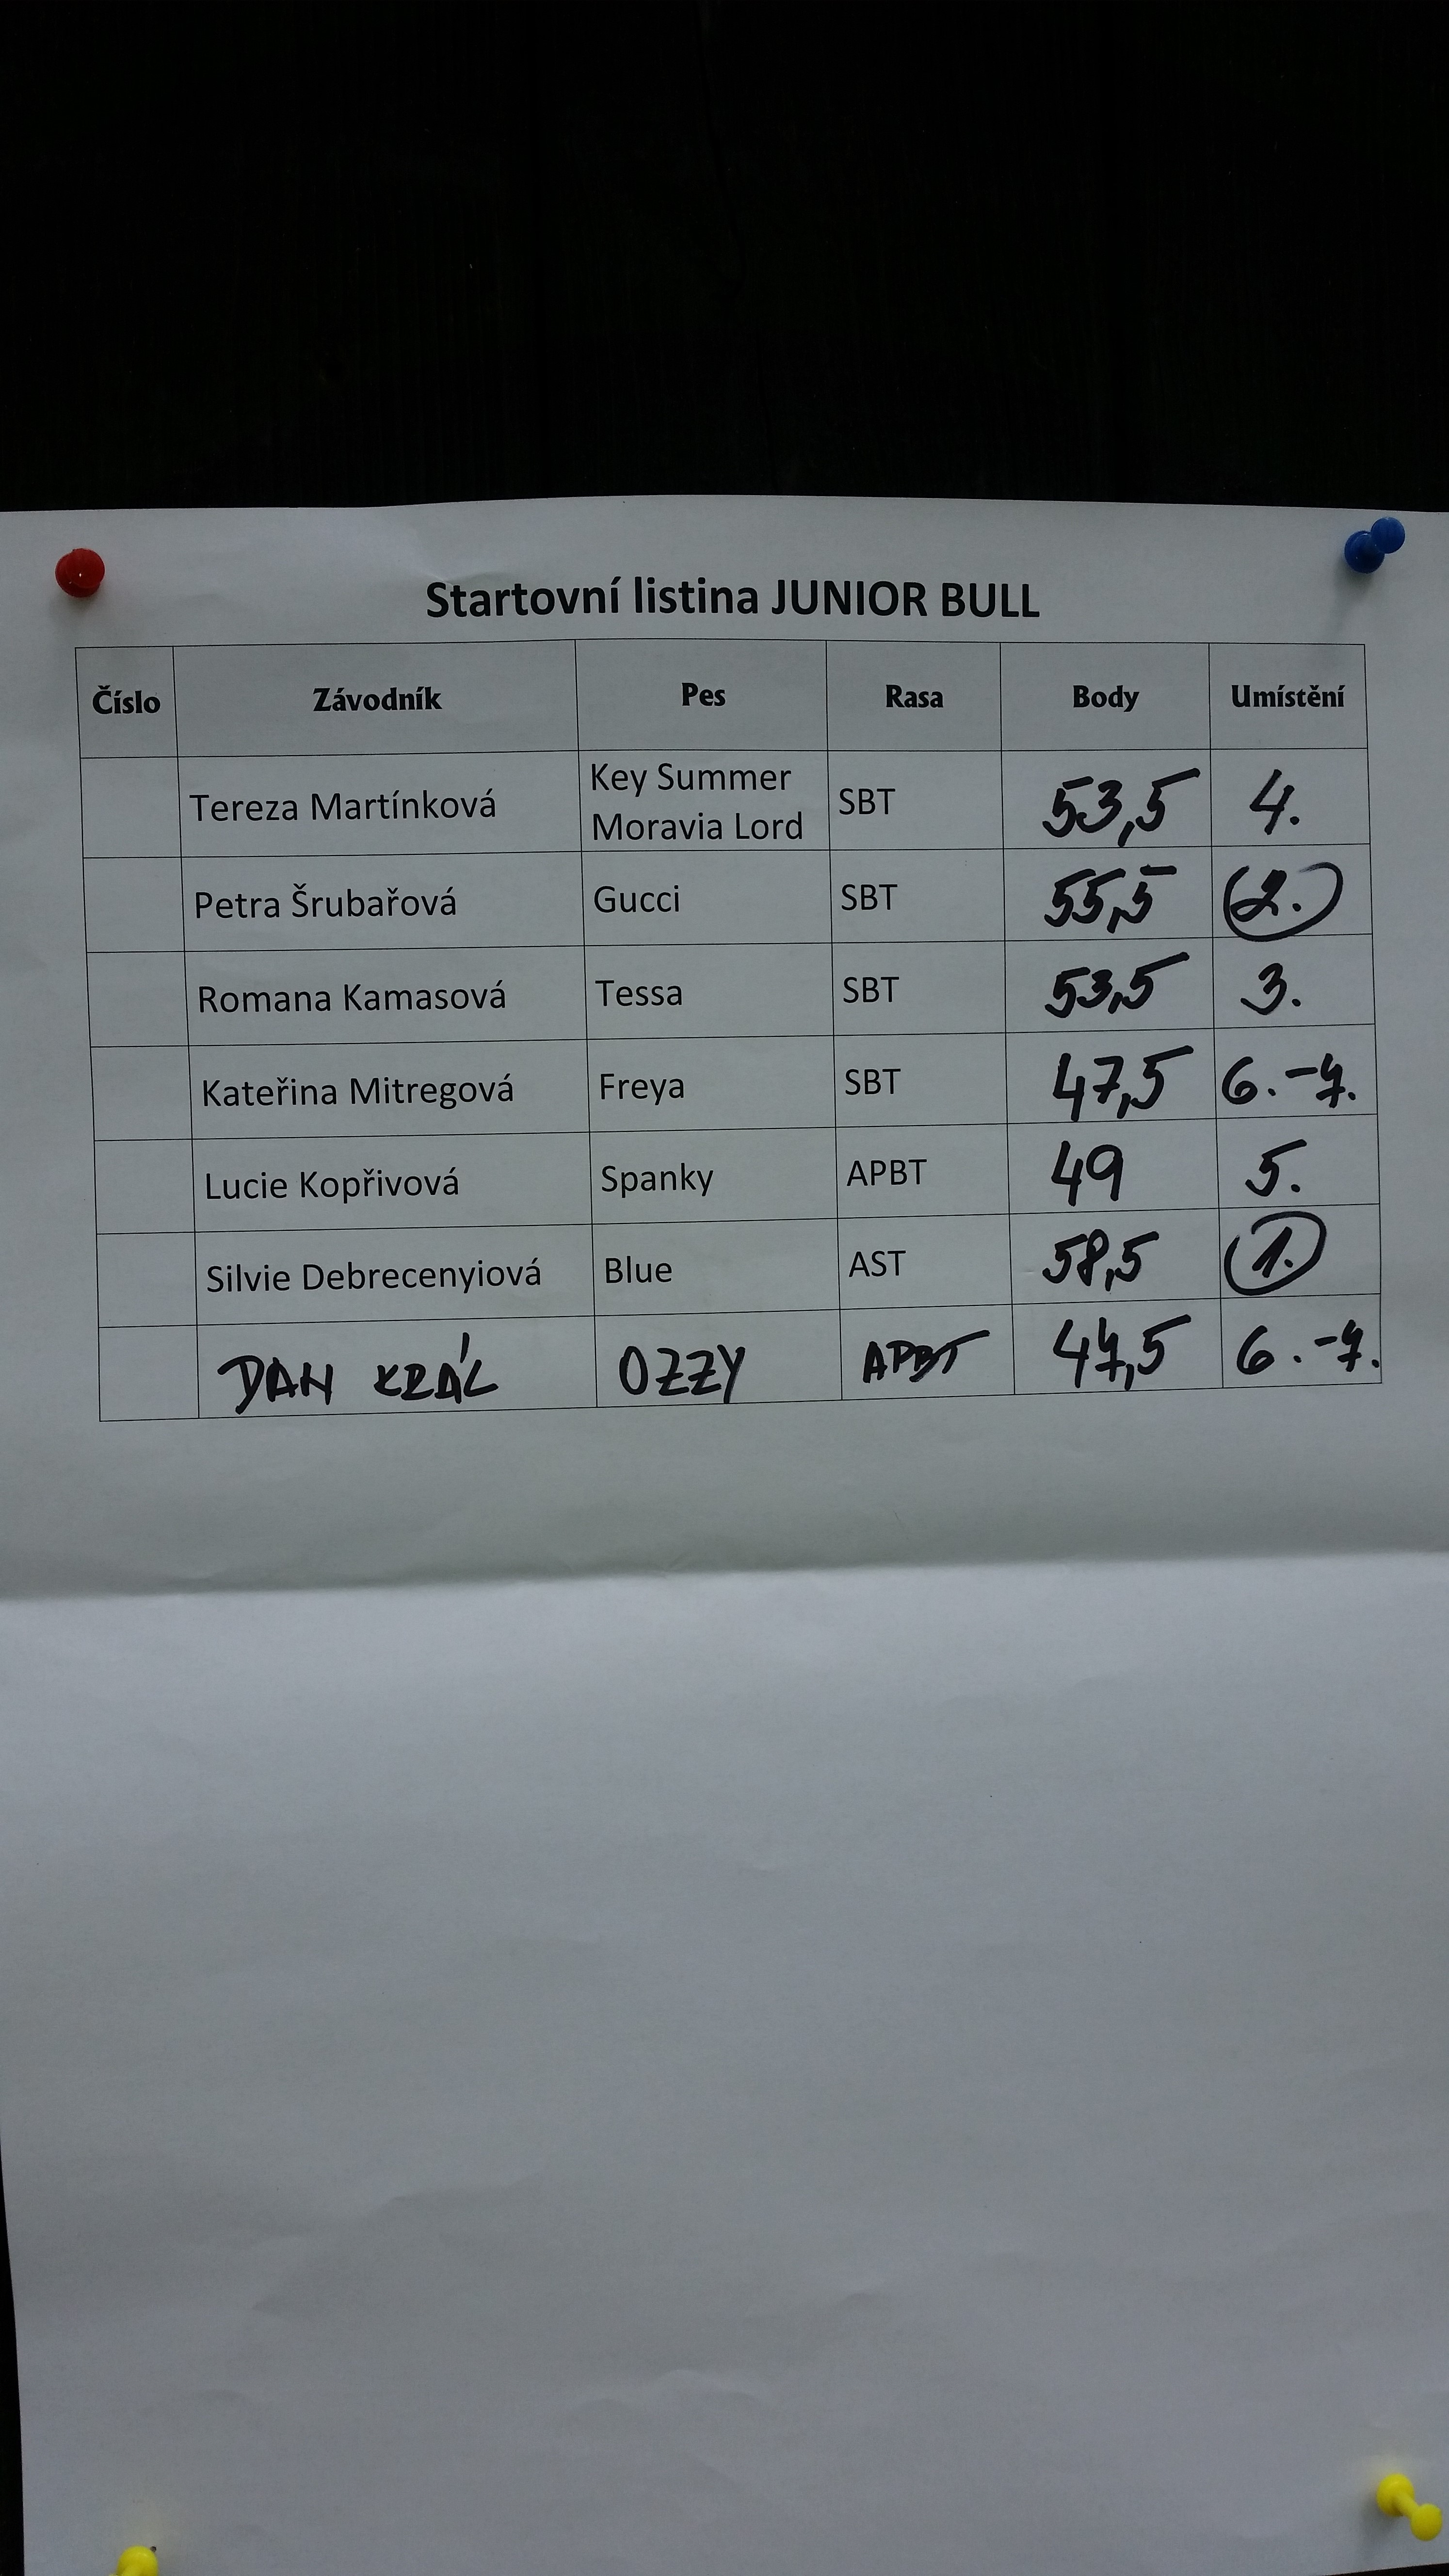 Startovní listina JUNIOR BULL
Číslo Závodník Pes Rasa Body Umístění
Tereza Martínková Key Summer Moravia Lord SBT 53,5 4.
Petra Šrubařová Gucci SBT 55,5 2.
Romana Kamasová Tessa SBT 53,5 3.
Kateřina Mitregová Freya SBT 47,5 6.-7.
Lucie Kopřivová Spanky APBT 49 5.
Silvie Debrecenyiová Blue AST 58,5 1.
DAN KRÁL OZZY APBT 47,5 6.-7.